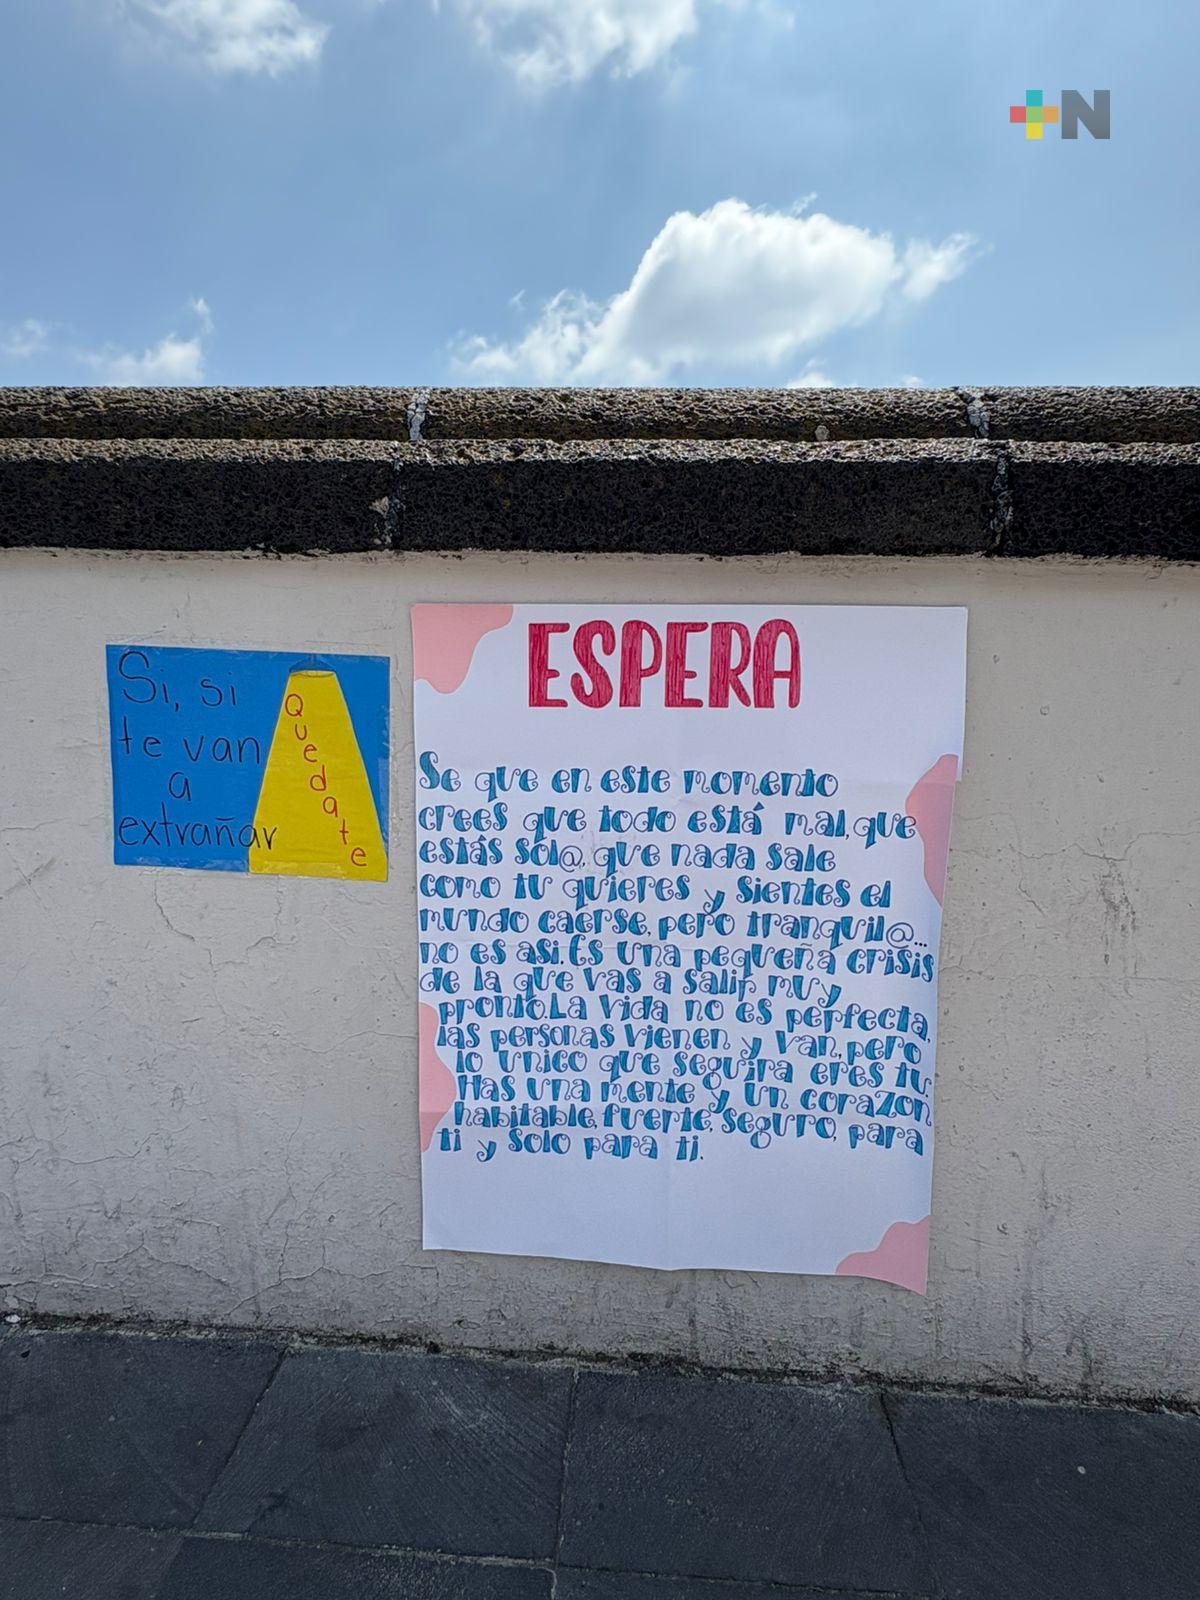 +N
Si, si
te van
a
extrañar
Quedate
ESPERA
Se que en este momento
crees que todo está mal, que
estás sol@, que nada sale
como tu quieres y sientes el
mundo caerse, pero tranquil@...
no es asi. Es una pequeña crisis
de la que vas a salir muy
pronto. La vida no es perfecta,
las personas vienen y van, pero
lo unico que seguira eres tu.
Has una mente y un corazon
habitable, fuerte, seguro, para
ti y solo para ti.